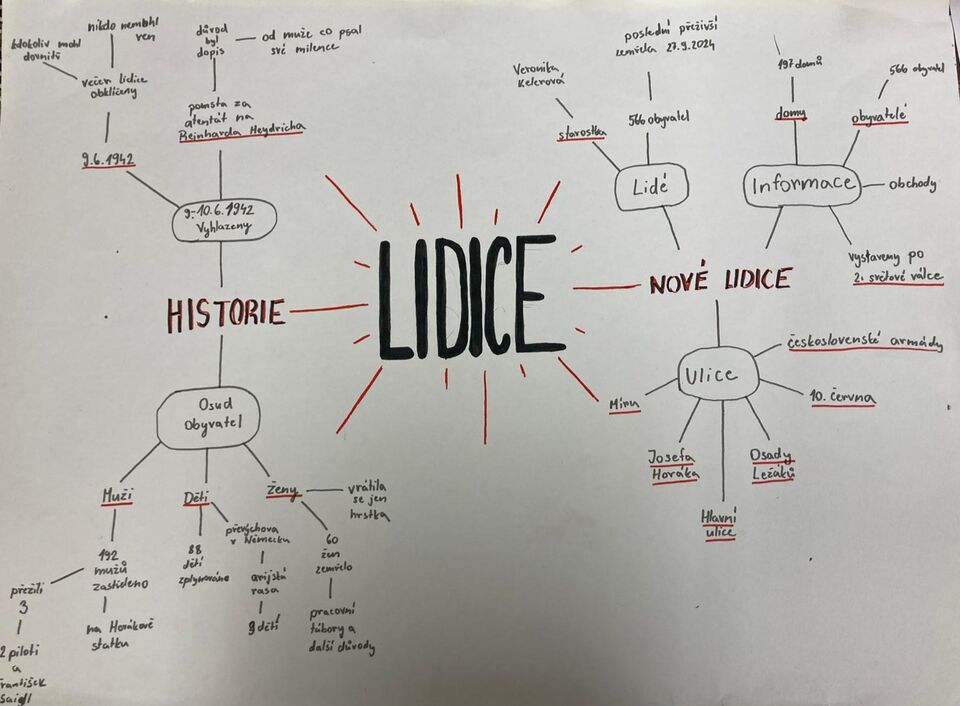 LIDICE
HISTORIE
9.-10.6.1942
Vyhlazeny
9.6.1942
večer Lidice
obklíčeny
kdokoliv mohl
dovnitř
nikdo nemohl
ven
pomsta za
atentát na
Reinharda Heydricha
důvod
byl
dopis
od muže co psal
své milence
Osud
Obyvatel
Muži
192
mužů
zastřeleno
na Horákově
statku
přežili
3
2 piloti
a
František
Saidl
Děti
88
dětí
zplynováno
převýchova
v Německu
arijská
rasa
9 dětí
Ženy
vrátila
se jen
hrstka
60
žen
zemřelo
pracovní
tábory a
další důvody
NOVÉ LIDICE
Lidé
starostka
Veronika
Kelerová
566 obyvatel
poslední přeživší
zemřela 27.9.2024
Informace
domy
197 domů
obyvatelé
566 obyvatel
obchody
vystaveny po
2. světové válce
Ulice
československé armády
10. června
Osady
Ležáků
Hlavní
ulice
Josefa
Horáka
Míru